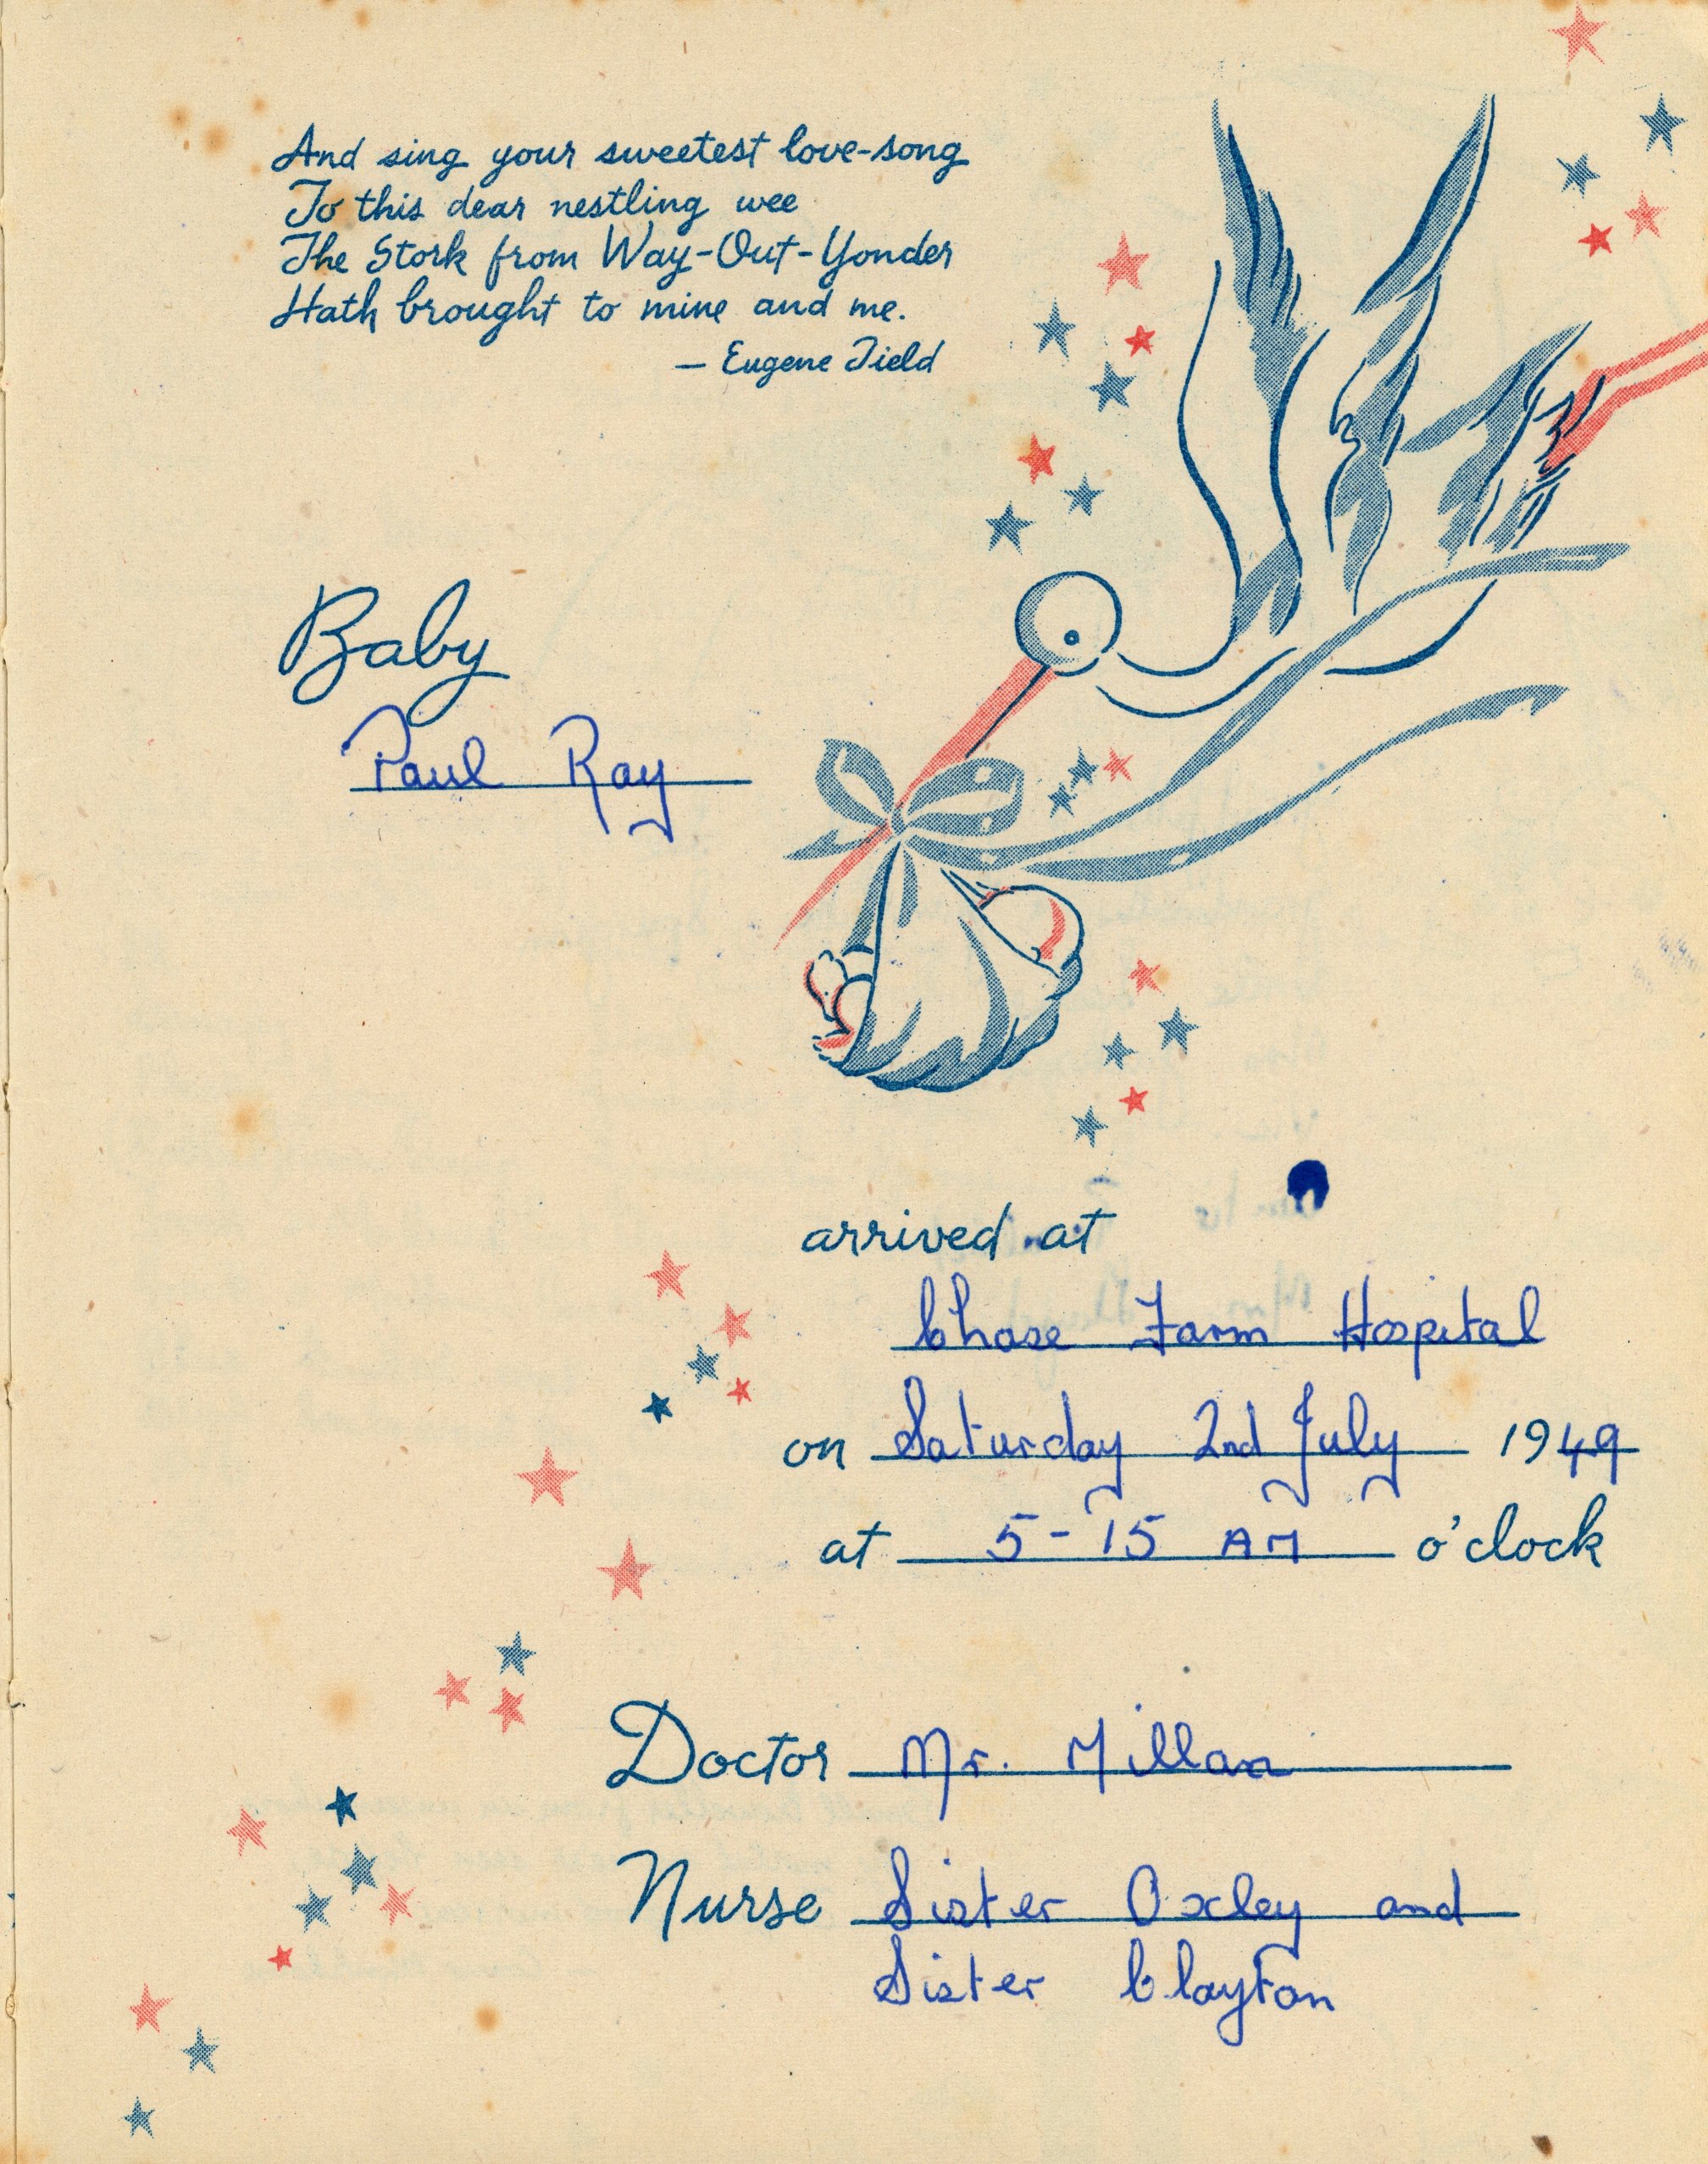 And sing your sweetest love-song
To this dear nestling wee
The Stork from Way-Out-Yonder
Hath brought to mine and me.
— Eugene Field
Baby
Paul Ray
arrived at
Chase Farm Hospital
on Saturday 2nd July 1949
at 5-15 AM o'clock
Doctor Mr. Millan
Nurse Sister Oxley and
Sister Clayton